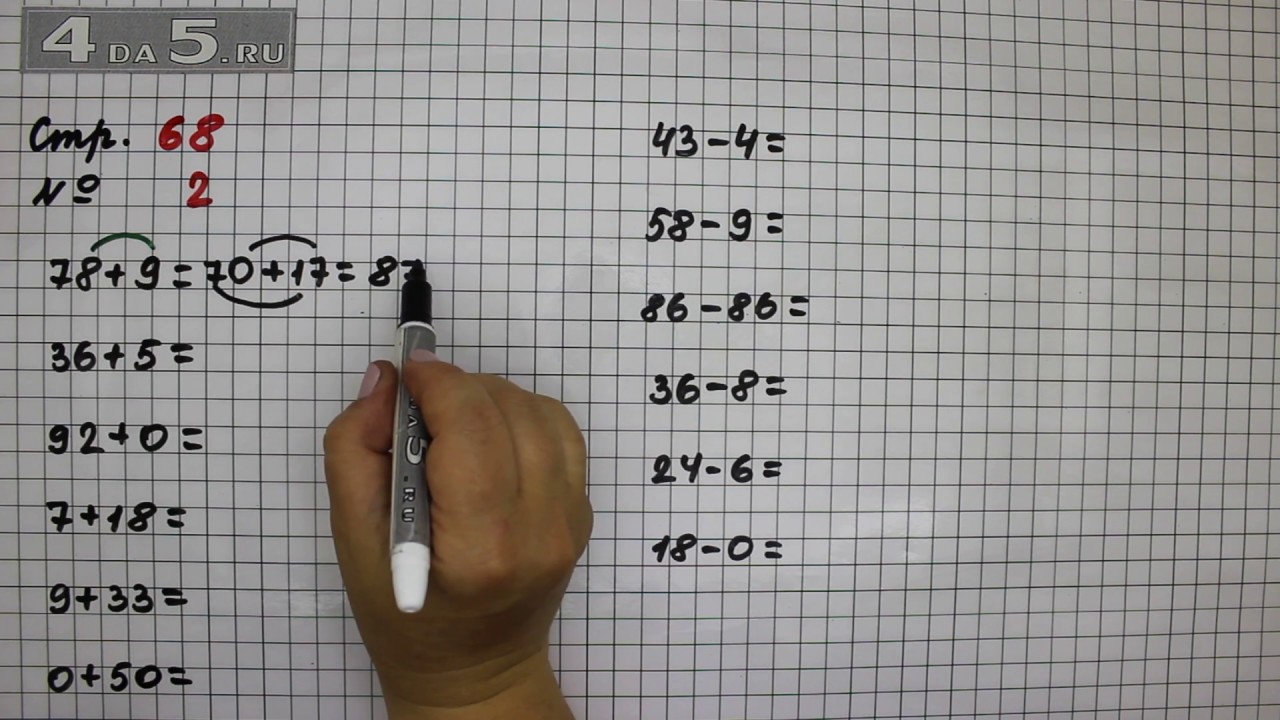 4 DA 5.RU
Стр. 68
№ 2
78+9=70+17=87
36+5=
92+0=
7+18=
9+33=
0+50=
43-4=
58-9=
86-86=
36-8=
24-6=
18-0=
DA 5.RU